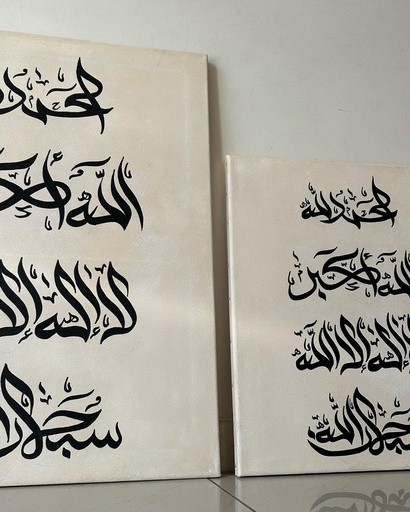 الحمد لله
الله أكبر
لا إله إلا الله
سبحان الله
الحمد
الله أكبر
لا إله إلا
سبحان